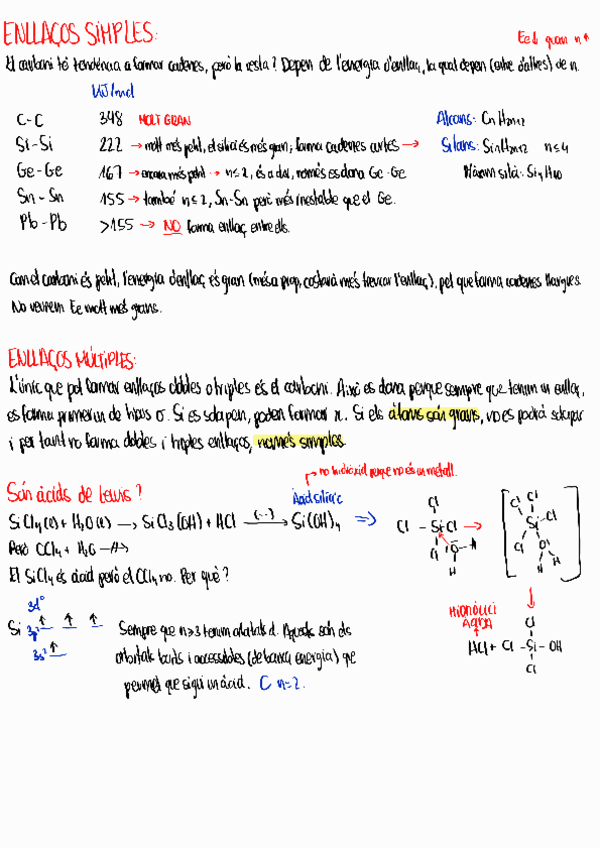 ENLLAÇOS SIMPLES:
Ee↓ quan n↑
El carboni té tendència a formar cadenes, però la resta? Depen de l'energia d'enllaç, la qual depen (entre d'altres) de n.
KJ/mol
C-C 348 MOLT GRAN Alcans: CnH2n+2
Si-Si 222 → molt més petit, el silici és més gran; forma cadenes curtes → Silans: SinH2n+2 n≤4
Ge-Ge 167 → encara més petit → n≤2, és a dir, només es dona Ge-Ge Màxim silà: Si4H10
Sn-Sn 155 → també n≤2, Sn-Sn però més inestable que el Ge.
Pb-Pb >155 → NO forma enllaç entre ells.
Com el carboni és petit, l'energia d'enllaç és gran (més a prop, costarà més trencar l'enllaç), pel que forma cadenes llargues.
No veurem Ee molt més grans.
ENLLAÇOS MÚLTIPLES:
L'únic que pot formar enllaços dobles o triples és el carboni. Això es dona perque sempre que tenim un enllaç,
es forma primer un de tipus σ. Si es solapen, poden formar π. Si els àtoms són grans, no es podrà solapar
i per tant no forma dobles i triples enllaços, només simples.
→ no hidròxid perque no és un metall.
Són àcids de Lewis?
Àcid silícic
SiCl4(l) + H2O(l) → SiCl3(OH) + HCl (...)→ Si(OH)4 ⇒
Però CCl4 + H2O -/→
El SiCl4 és àcid però el CCl4 no. Per què?
Cl
Cl - Si Cl →
Cl O - H
H
Cl Cl
Si Cl
Cl O
H H
3d°
Si 3p² ↑ ↑ ↑
3s² ↑
Sempre que n≥3 tenim orbitals d. Aquests són els
orbitals buits i accessibles (de baixa energia) que
permet que sigui un àcid. C n=2.
HCl + Cl - Si - OH
Cl
Cl